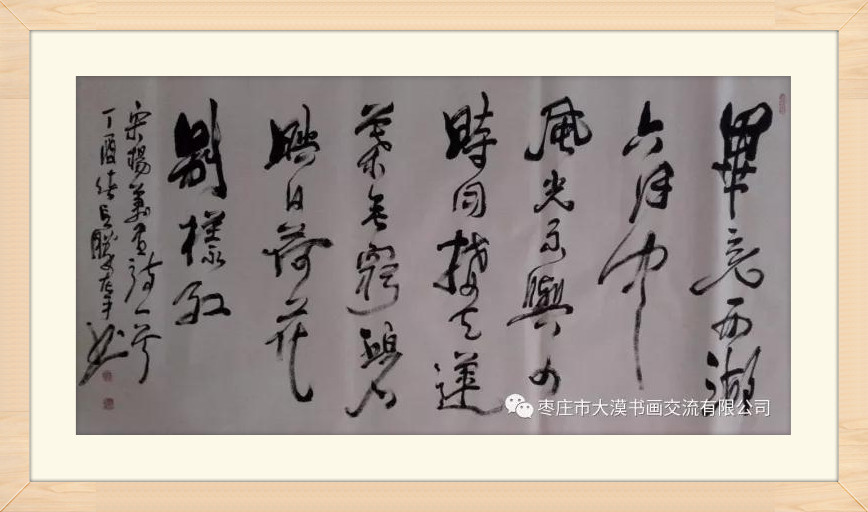 畢竟西湖
六月中
風光不與四
時同接天蓮
葉無窮碧
映日荷花
別樣紅
宋楊萬里詩一首
丁酉 左手書
枣庄市大漠书画交流有限公司